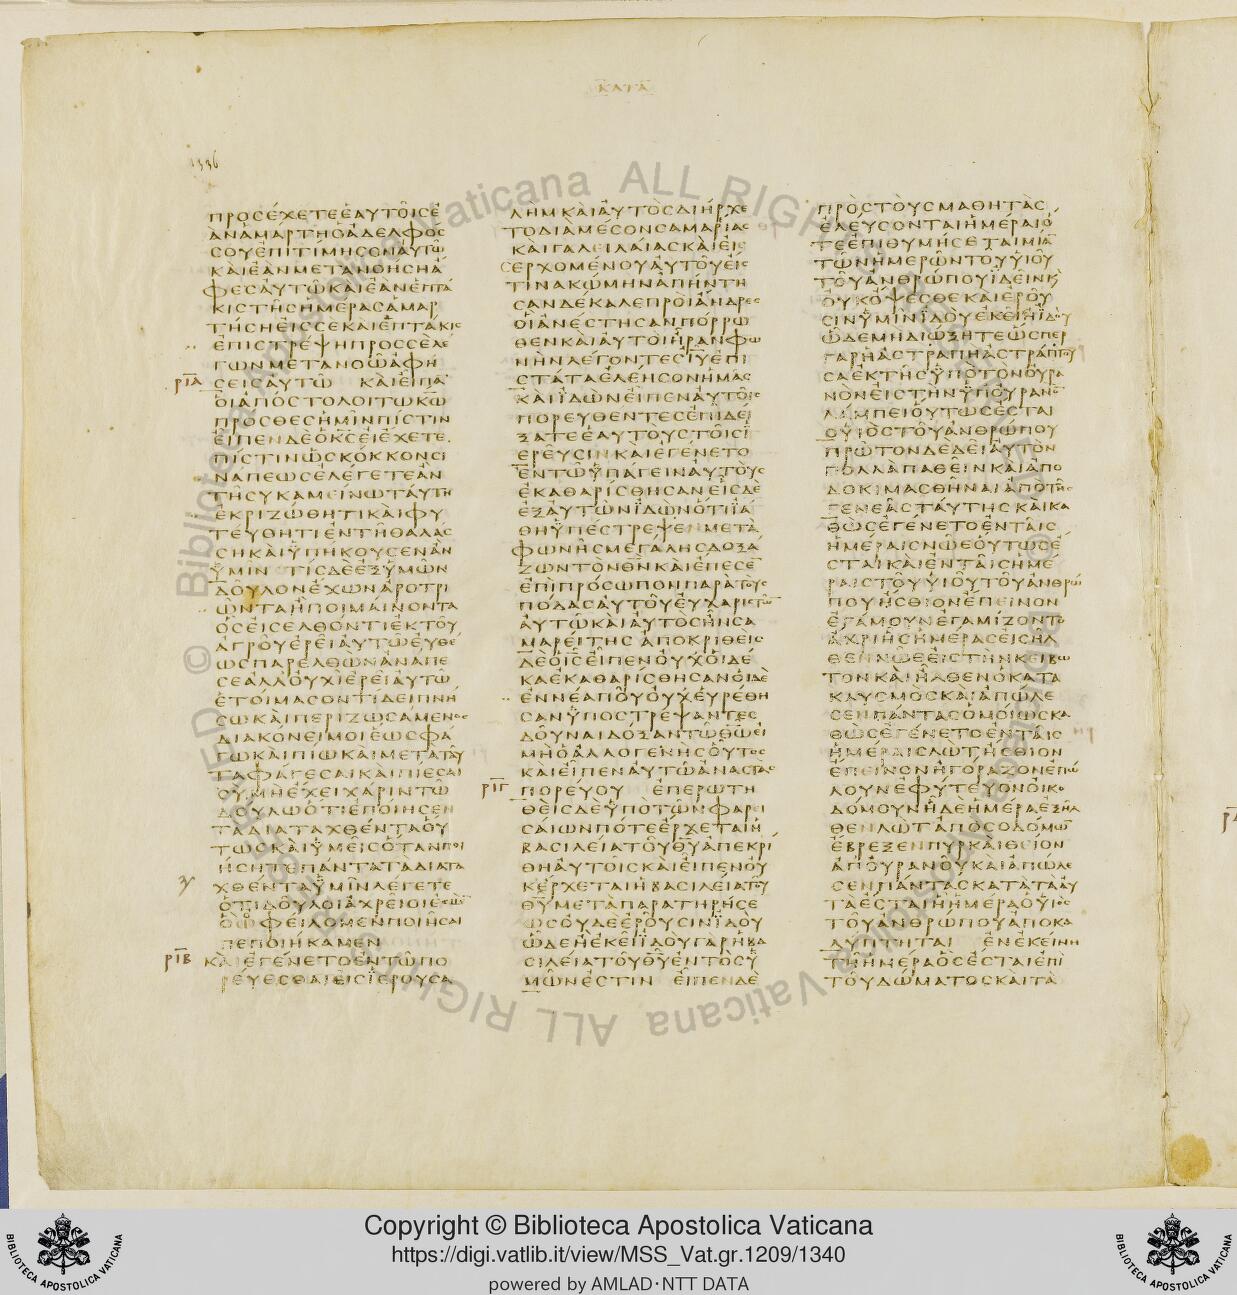 ΚΑΤΑ
1336
ΠΡΟΣΕΧΕΤΕΕΑΥΤΟΙΣΕ
ΑΝΑΜΑΡΤΗΟΑΔΕΛΦΟΣ
ΣΟΥΕΠΙΤΙΜΗΣΟΝΑΥΤΩ
ΚΑΙΕΑΝΜΕΤΑΝΟΗΣΗΑ
ΦΕΣΑΥΤΩΚΑΙΕΑΝΕΠΤΑ
ΚΙΣΤΗΣΗΜΕΡΑΣΑΜΑΡ
ΤΗΣΗΕΙΣΣΕΚΑΙΕΠΤΑΚΙΣ
ΕΠΙΣΤΡΕΨΗΠΡΟΣΣΕΛΕ
ΓΩΝΜΕΤΑΝΟΩΑΦΗ
ΡΙΑ ΣΕΙΣΑΥΤΩ ΚΑΙΕΙΠΑ
ΟΙΑΠΟΣΤΟΛΟΙΤΩΚΩ
ΠΡΟΣΘΕΣΗΜΙΝΠΙΣΤΙΝ
ΕΙΠΕΝΔΕΟΚΣΕΙΕΧΕΤΕ
ΠΙΣΤΙΝΩΣΚΟΚΚΟΝΣΙ
ΝΑΠΕΩΣΕΛΕΓΕΤΕΑΝ
ΤΗΣΥΚΑΜΕΙΝΩΤΑΥΤΗ
ΕΚΡΙΖΩΘΗΤΙΚΑΙΦΥ
ΤΕΥΘΗΤΙΕΝΤΗΘΑΛΑΣ
ΣΗΚΑΙΥΠΗΚΟΥΣΕΝΑΝ
ΥΜΙΝ ΤΙΣΔΕΕΞΥΜΩΝ
ΔΟΥΛΟΝΕΧΩΝΑΡΟΤΡΙ
ΩΝΤΑΗΠΟΙΜΑΙΝΟΝΤΑ
ΟΣΕΙΣΕΛΘΟΝΤΙΕΚΤΟΥ
ΑΓΡΟΥΕΡΕΙΑΥΤΩΕΥΘΕ
ΩΣΠΑΡΕΛΘΩΝΑΝΑΠΕ
ΣΕΑΛΛΟΥΧΙΕΡΕΙΑΥΤΩ
ΕΤΟΙΜΑΣΟΝΤΙΔΕΙΠΝΗ
ΣΩΚΑΙΠΕΡΙΖΩΣΑΜΕΝΟΣ
ΔΙΑΚΟΝΕΙΜΟΙΕΩΣΦΑ
ΓΩΚΑΙΠΙΩΚΑΙΜΕΤΑΤΑΥ
ΤΑΦΑΓΕΣΑΙΚΑΙΠΙΕΣΑΙ
ΣΥΜΗΕΧΕΙΧΑΡΙΝΤΩ
ΔΟΥΛΩΟΤΙΕΠΟΙΗΣΕΝ
ΤΑΔΙΑΤΑΧΘΕΝΤΑΟΥ
ΤΩΣΚΑΙΥΜΕΙΣΟΤΑΝΠΟΙ
ΗΣΗΤΕΠΑΝΤΑΤΑΔΙΑΤΑ
ΧΘΕΝΤΑΥΜΙΝΛΕΓΕΤΕ
ΟΤΙΔΟΥΛΟΙΑΧΡΕΙΟΙΕΣΜΕ
ΟΩΦΕΙΛΟΜΕΝΠΟΙΗΣΑΙ
ΠΕΠΟΙΗΚΑΜΕΝ
ΡΙΒ ΚΑΙΕΓΕΝΕΤΟΕΝΤΩΠΟ
ΡΕΥΕΣΘΑΙΕΙΣΙΕΡΟΥΣΑ
ΛΗΜΚΑΙΑΥΤΟΣΔΙΗΡΧΕ
ΤΟΔΙΑΜΕΣΟΝΣΑΜΑΡΙΑΣ
ΚΑΙΓΑΛΕΙΛΑΙΑΣΚΑΙΕΙΣ
ΕΡΧΟΜΕΝΟΥΑΥΤΟΥΕΙΣ
ΤΙΝΑΚΩΜΗΝΑΠΗΝΤΗ
ΣΑΝΔΕΚΑΛΕΠΡΟΙΑΝΔΡΕΣ
ΟΙΑΝΕΣΤΗΣΑΝΠΟΡΡΩ
ΘΕΝΚΑΙΑΥΤΟΙΗΡΑΝΦΩ
ΝΗΝΛΕΓΟΝΤΕΣΙΥΕΠΙ
ΣΤΑΤΑΕΛΕΗΣΟΝΗΜΑΣ
ΚΑΙΙΔΩΝΕΙΠΕΝΑΥΤΟΙΣ
ΠΟΡΕΥΘΕΝΤΕΣΕΠΙΔΕΙ
ΞΑΤΕΕΑΥΤΟΥΣΤΟΙΣΙ
ΕΡΕΥΣΙΝΚΑΙΕΓΕΝΕΤΟ
ΕΝΤΩΥΠΑΓΕΙΝΑΥΤΟΥΣ
ΕΚΑΘΑΡΙΣΘΗΣΑΝΕΙΣΔΕ
ΕΞΑΥΤΩΝΙΔΩΝΟΤΙΙΑ
ΘΗΥΠΕΣΤΡΕΨΕΝΜΕΤΑ
ΦΩΝΗΣΜΕΓΑΛΗΣΔΟΞΑ
ΖΩΝΤΟΝΘΝΚΑΙΕΠΕΣΕ
ΕΠΙΠΡΟΣΩΠΟΝΠΑΡΑΤΟΥΣ
ΠΟΔΑΣΑΥΤΟΥΕΥΧΑΡΙΣΤΩ
ΑΥΤΩΚΑΙΑΥΤΟΣΗΝΣΑ
ΜΑΡΕΙΤΗΣ ΑΠΟΚΡΙΘΕΙΣ
ΔΕΟΙΣΕΙΠΕΝΟΥΧΟΙΔΕ
ΚΑΕΚΑΘΑΡΙΣΘΗΣΑΝΟΙΔΕ
ΕΝΝΕΑΠΟΥΟΥΧΕΥΡΕΘΗ
ΣΑΝΥΠΟΣΤΡΕΨΑΝΤΕΣ
ΔΟΥΝΑΙΔΟΞΑΝΤΩΘΩΕΙ
ΜΗΟΑΛΛΟΓΕΝΗΣΟΥΤΟΣ
ΚΑΙΕΙΠΕΝΑΥΤΩΑΝΑΣΤΑΣ
ΡΙΓ ΠΟΡΕΥΟΥ ΕΠΕΡΩΤΗ
ΘΕΙΣΔΕΥΠΟΤΩΝΦΑΡΕΙ
ΣΑΙΩΝΠΟΤΕΕΡΧΕΤΑΙΗ
ΒΑΣΙΛΕΙΑΤΟΥΘΥΑΠΕΚΡΙ
ΘΗΑΥΤΟΙΣΚΑΙΕΙΠΕΝΟΥ
ΚΕΡΧΕΤΑΙΗΒΑΣΙΛΕΙΑΤΟΥ
ΘΥΜΕΤΑΠΑΡΑΤΗΡΗΣΕ
ΩΣΟΥΔΕΕΡΟΥΣΙΝΙΔΟΥ
ΩΔΕΗΕΚΕΙΙΔΟΥΓΑΡΗΒΑ
ΣΙΛΕΙΑΤΟΥΘΥΕΝΤΟΣΥ
ΜΩΝΕΣΤΙΝ ΕΙΠΕΝΔΕ
ΠΡΟΣΤΟΥΣΜΑΘΗΤΑΣ
ΕΛΕΥΣΟΝΤΑΙΗΜΕΡΑΙΟ
ΤΕΕΠΙΘΥΜΗΣΕΤΑΙΜΙΑ
ΤΩΝΗΜΕΡΩΝΤΟΥΥΙΟΥ
ΤΟΥΑΝΘΡΩΠΟΥΙΔΕΙΝΚ
ΟΥΚΟΨΕΣΘΕΚΑΙΕΡΟΥ
ΣΙΝΥΜΙΝΙΔΟΥΕΚΕΙΗΙΔΟΥ
ΩΔΕΜΗΔΙΩΞΗΤΕΩΣΠΕΡ
ΓΑΡΗΑΣΤΡΑΠΗΑΣΤΡΑΠΤΟΥ
ΣΑΕΚΤΗΣΥΠΟΤΟΝΟΥΡΑ
ΝΟΝΕΙΣΤΗΝΥΠΟΥΡΑΝΟ
ΛΑΜΠΕΙΟΥΤΩΣΕΣΤΑΙ
ΟΥΙΟΣΤΟΥΑΝΘΡΩΠΟΥ
ΠΡΩΤΟΝΔΕΔΕΙΑΥΤΟΝ
ΠΟΛΛΑΠΑΘΕΙΝΚΑΙΑΠΟ
ΔΟΚΙΜΑΣΘΗΝΑΙΑΠΟΤΗΣ
ΓΕΝΕΑΣΤΑΥΤΗΣΚΑΙΚΑ
ΘΩΣΕΓΕΝΕΤΟΕΝΤΑΙΣ
ΗΜΕΡΑΙΣΝΩΕΟΥΤΩΣΕ
ΣΤΑΙΚΑΙΕΝΤΑΙΣΗΜΕ
ΡΑΙΣΤΟΥΥΙΟΥΤΟΥΑΝΘΡΩ
ΠΟΥΗΣΘΙΟΝΕΠΕΙΝΟΝ
ΕΓΑΜΟΥΝΕΓΑΜΙΖΟΝΤΟ
ΑΧΡΙΗΣΗΜΕΡΑΣΕΙΣΗΛ
ΘΕΝΝΩΕΕΙΣΤΗΝΚΕΙΒΩ
ΤΟΝΚΑΙΗΛΘΕΝΟΚΑΤΑ
ΚΛΥΣΜΟΣΚΑΙΑΠΩΛΕ
ΣΕΝΠΑΝΤΑΣΟΜΟΙΩΣΚΑ
ΘΩΣΕΓΕΝΕΤΟΕΝΤΑΙΣ
ΗΜΕΡΑΙΣΛΩΤΗΣΘΙΟΝ
ΕΠΕΙΝΟΝΗΓΟΡΑΖΟΝΕΠΩ
ΛΟΥΝΕΦΥΤΕΥΟΝΟΙΚΟ
ΔΟΜΟΥΝΗΔΕΗΜΕΡΑΕΞΗΛ
ΘΕΝΛΩΤΑΠΟΣΟΔΟΜΩ
ΕΒΡΕΞΕΝΠΥΡΚΑΙΘΕΙΟΝ
ΑΠΟΥΡΑΝΟΥΚΑΙΑΠΩΛΕ
ΣΕΝΠΑΝΤΑΣΚΑΤΑΤΑΑΥ
ΤΑΕΣΤΑΙΗΗΜΕΡΑΟΥΙΟΣ
ΤΟΥΑΝΘΡΩΠΟΥΑΠΟΚΑ
ΛΥΠΤΗΤΑΙ ΕΝΕΚΕΙΝΗ
ΤΗΗΜΕΡΑΟΣΕΣΤΑΙΕΠΙ
ΤΟΥΔΩΜΑΤΟΣΚΑΙΤΑ
Copyright © Biblioteca Apostolica Vaticana
https://digi.vatlib.it/view/MSS_Vat.gr.1209/1340
powered by AMLAD·NTT DATA